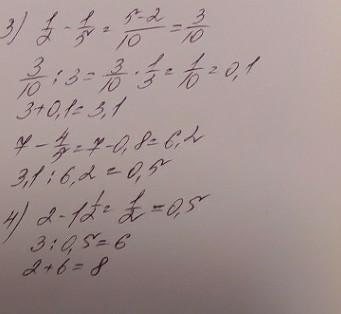 3) 1/2 - 1/5 = (5-2)/10 = 3/10
3/10 : 3 = 3/10 · 1/3 = 1/10 = 0,1
3+0,1=3,1
7 - 4/5 = 7-0,8=6,2
3,1:6,2=0,5
4) 2-1 1/2 = 1/2 = 0,5
3:0,5=6
2+6=8